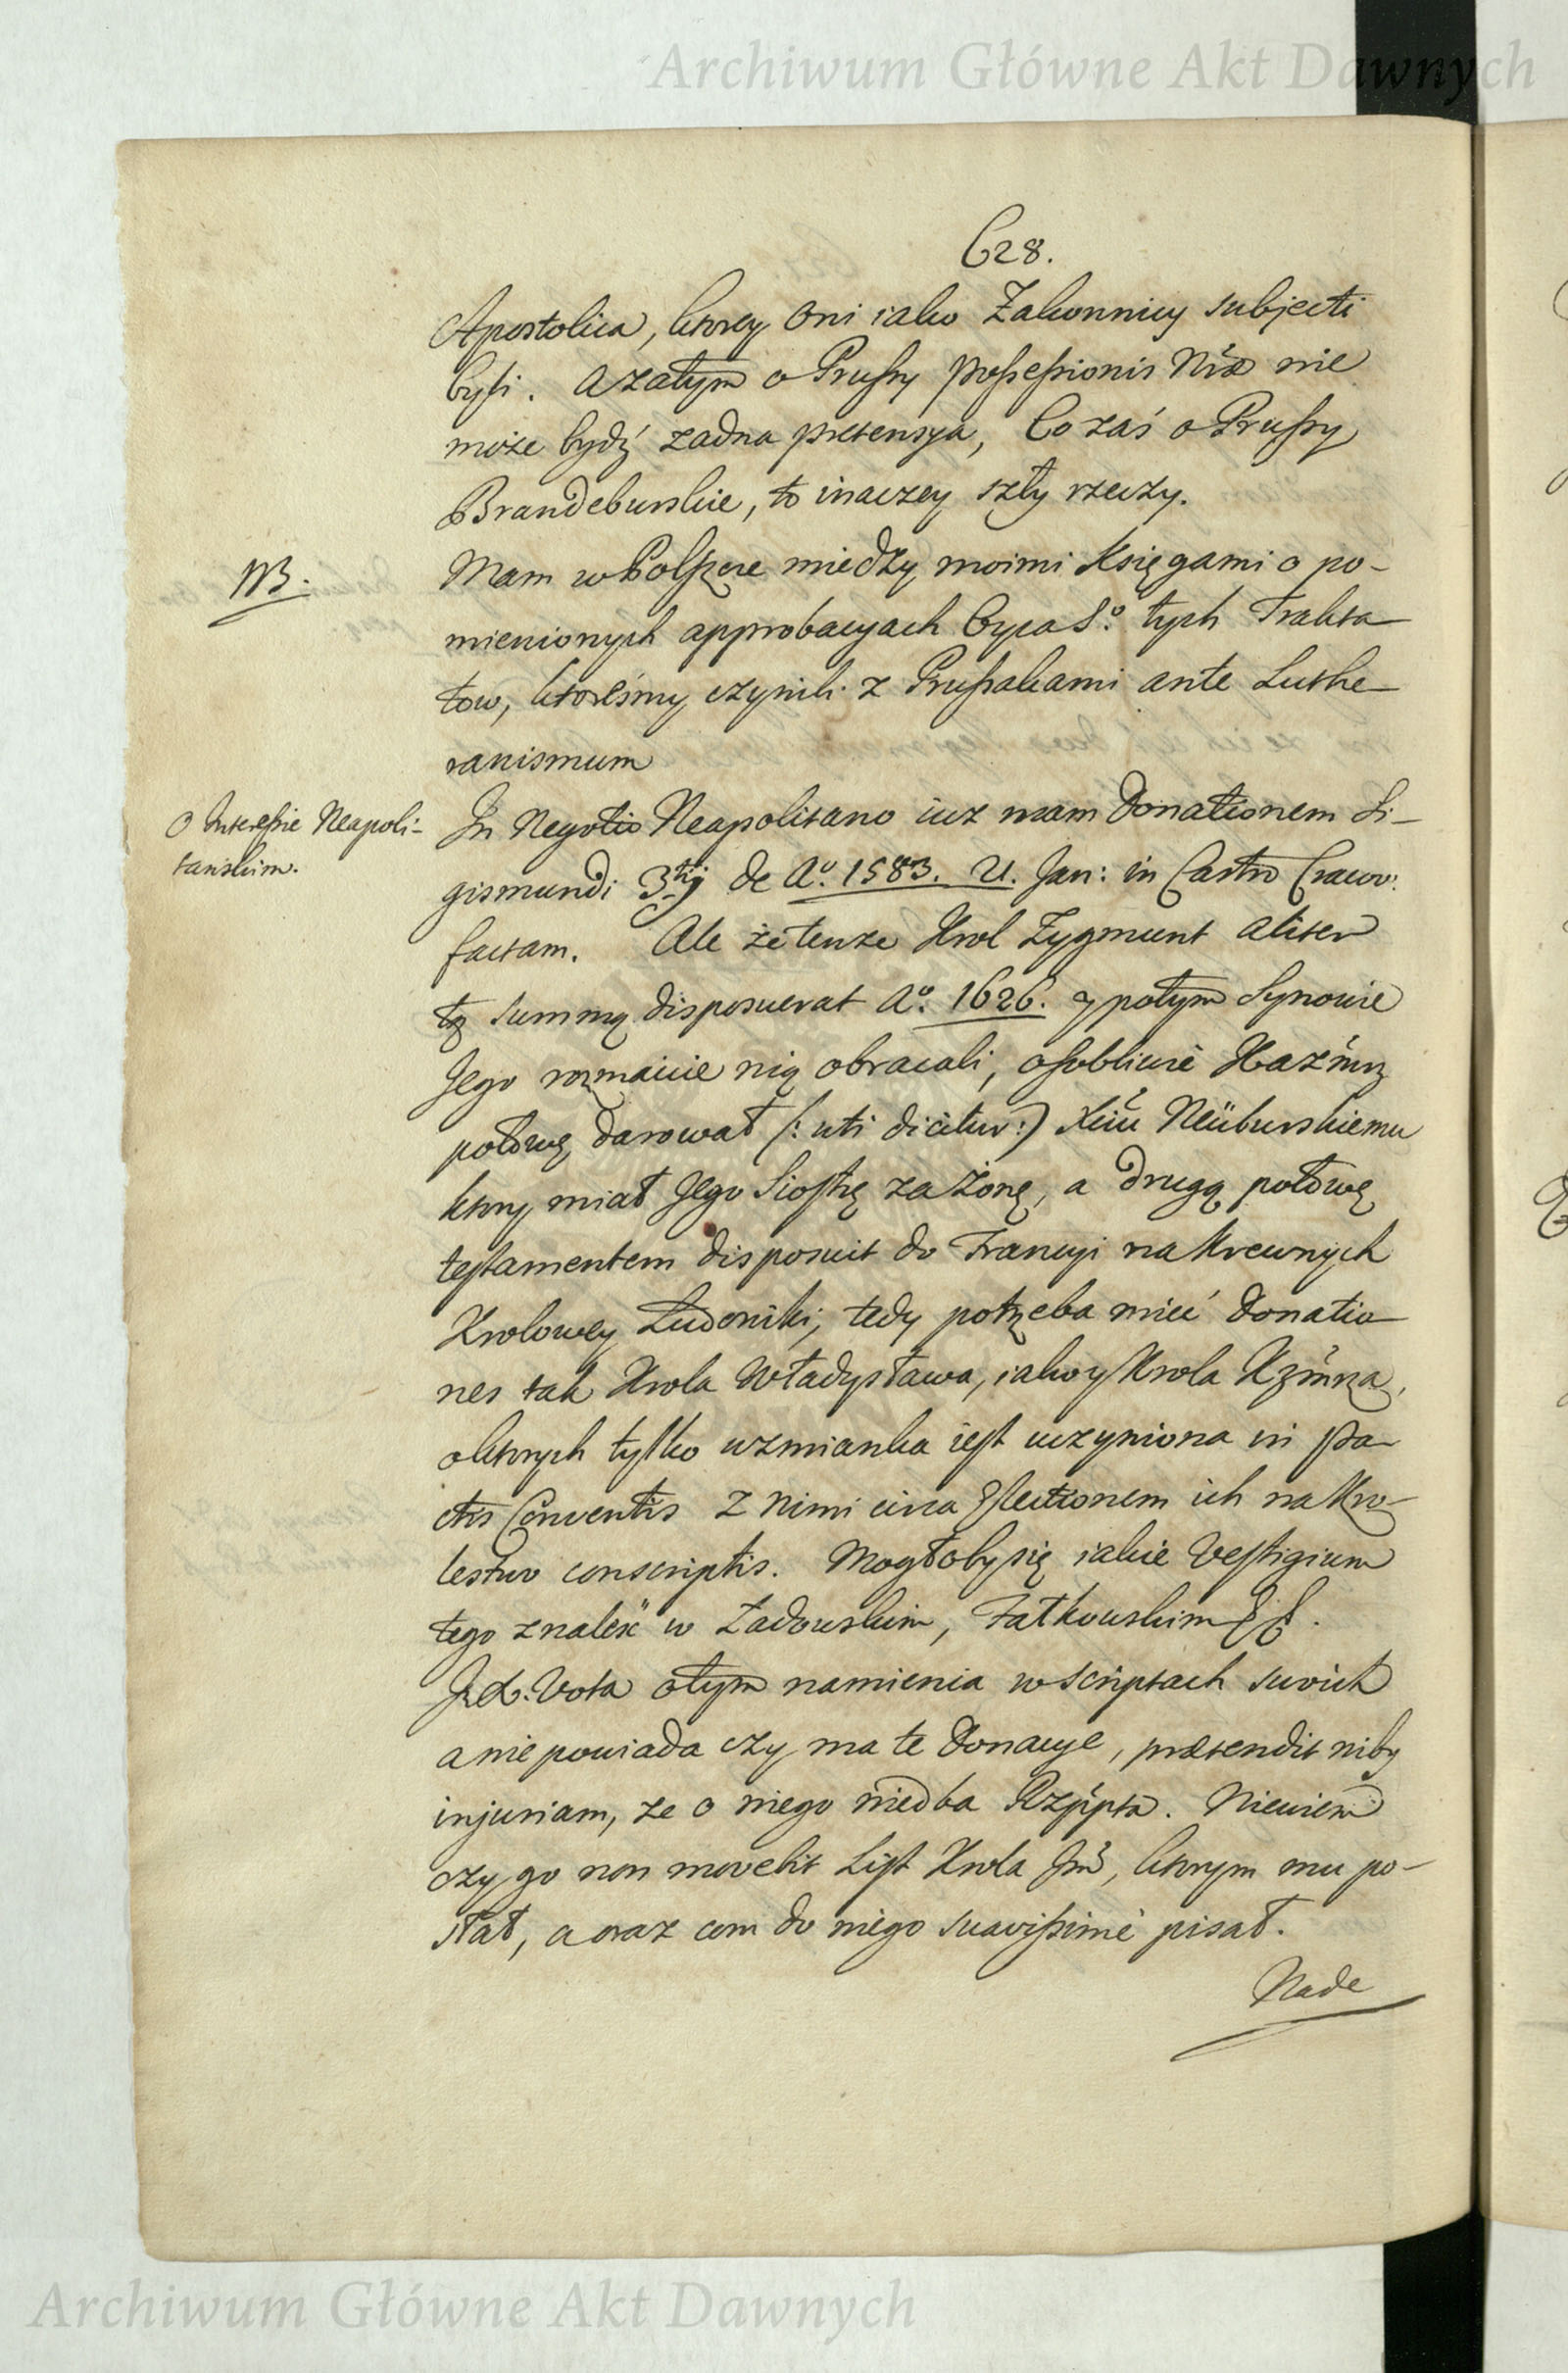 Archiwum Główne Akt Dawnych
628.
Apostolica, ktorey oni iako Zakonnicy subjecti
byli. a zatym o Prussy possessionis Nrae nie
może bydź zadna pretensya, Co zaś o Prussy
Brandeburskie, to inaczey szły rzeczy.
NB.
Mam w Polszcze miedzy moimi Księgami o po-
mienionych approbacyach Cyca So. tych Trakta
tow, ktoreśmy czynili z Prussakami ante Luthe-
ranismum
O Interessie Neapoli-
tanskim.
In Negotio Neapolitano iuz mam Donationem Si-
gismundi 3tij de Ao. 1583. 21. Jan: in Castro Cracov:
factam. Ale że tenze Krol Zygmunt aliter
tę summę disposuerat Ao. 1626. y potym Synowie
Jego rozmaicie nią obracali, osobliwie Kaźmrz
połowę darował (: uti dicitur :) Xiu Neüburskiemu
ktory miał Jego Siostrę za Żonę, a drugą połowę
testamentem disposuit do Francyi na Krewnych
Krolowey Ludowiki, tedy potrzeba mieć Donatio-
nes tak Krola Władysława, iako y Krola Kzmrza,
o ktorych tylko wzmianka iest uczyniona in Pa-
ctis Conventis z nimi circa Electionem ich na Kro-
lestwo conscriptis. Mogłoby się iakie Vestigium
tego znaleść w Zadowskim, Fatkowskim &&.
J. X. Vota o tym namienia w scriptach swoich
a nie powiada czy ma te Donacye, praetendit niby
injuriam, ze o niego niedba Rzpspta. Niewiem
czy go non movebit List Krola Jmć, ktorym mu po-
słał, a oraz com do niego suavissimè pisał.
Nade
Archiwum Główne Akt Dawnych